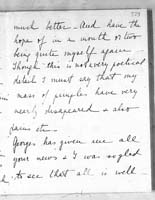 much better. And have the
hope of in a month or two
being quite myself again.
Though this is not very poetical
detail I must say that my
mass of pimples have very
nearly disapeared & also
pains etc.
George has given me all
your news & I was so glad
to see that all is well